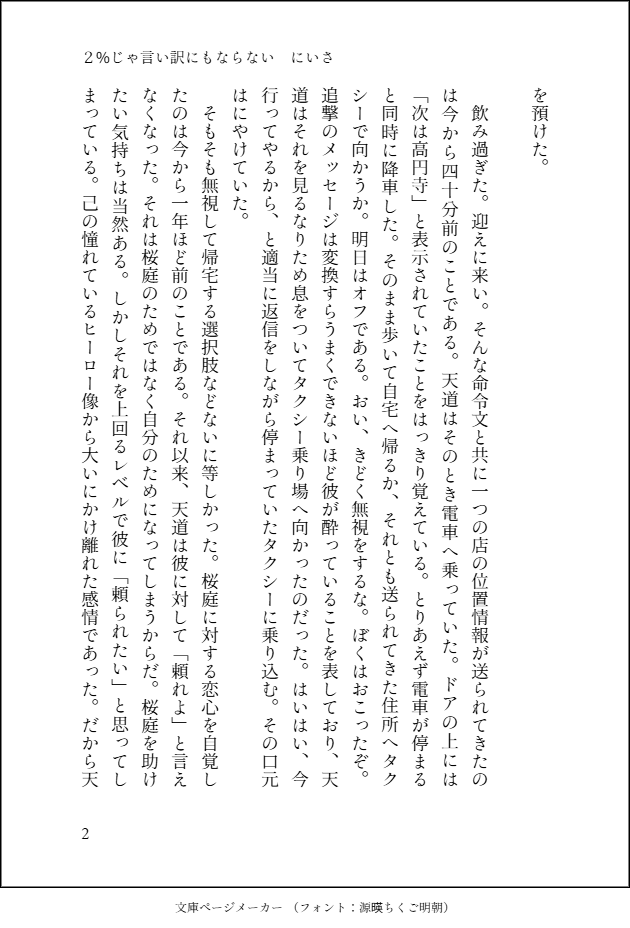 ２％じゃ言い訳にもならない　にいさ
を預けた。
飲み過ぎた。迎えに来い。そんな命令文と共に一つの店の位置情報が送られてきたの
は今から四十分前のことである。天道はそのとき電車へ乗っていた。ドアの上には
「次は高円寺」と表示されていたことをはっきり覚えている。とりあえず電車が停まる
と同時に降車した。そのまま歩いて自宅へ帰るか、それとも送られてきた住所へタク
シーで向かうか。明日はオフである。おい、きどく無視をするな。ぼくはおこったぞ。
追撃のメッセージは変換すらうまくできないほど彼が酔っていることを表しており、天
道はそれを見るなりため息をついてタクシー乗り場へ向かったのだった。はいはい、今
行ってやるから、と適当に返信をしながら停まっていたタクシーに乗り込む。その口元
はにやけていた。
そもそも無視して帰宅する選択肢などないに等しかった。桜庭に対する恋心を自覚し
たのは今から一年ほど前のことである。それ以来、天道は彼に対して「頼れよ」と言え
なくなった。それは桜庭のためではなく自分のためになってしまうからだ。桜庭を助け
たい気持ちは当然ある。しかしそれを上回るレベルで彼に「頼られたい」と思ってし
まっている。己の憧れているヒーロー像から大いにかけ離れた感情であった。だから天
2
文庫ページメーカー （フォント：源暎ちくご明朝）